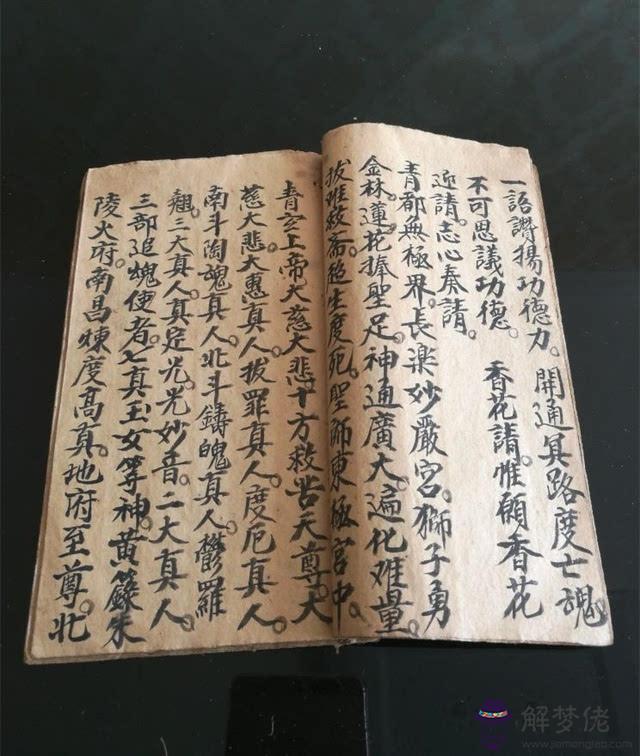 一語讚揚功德力。開通冥路度亡魂。
不可思議功德。 香花請。惟願香花
迎請。志心奏請。
青都無極界。長楽妙嚴宮。獅子勇
金林。蓮花捧聖足。神通廣大。遍化难量。
拔唯救斋。超生度死。聖師東極宮中。
青玄上帝大慈大悲十方救苦天尊。大
慈大悲大惠真人。拔罪真人。度厄真人。
南斗陶魂真人。北斗鑄魄真人。鬱羅
翹三大真人。真定光。光妙音。二大真人。
三部追魂使者。七真玉女等神。黄籙朱
陵火府。南昌煉度高真。地府至尊。北
解梦佬
www.jiemenglao.com